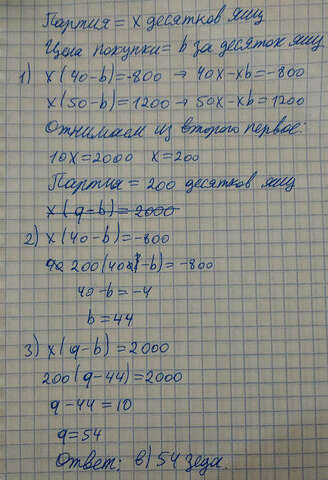 Партия = x десятков яиц
Цена покупки = b за десяток яиц
1) x(40-b)=-800 → 40x-xb=-800
x(50-b)=1200 → 50x-xb=1200
Отнимаем из второго первое:
10x=2000 x=200
Партия = 200 десятков яиц
x(q-b)=2000
2) x(40-b)=-800
200(40-b)=-800
40-b=-4
b=44
3) x(q-b)=2000
200(q-44)=2000
q-44=10
q=54
Ответ: в) 54 зеда.